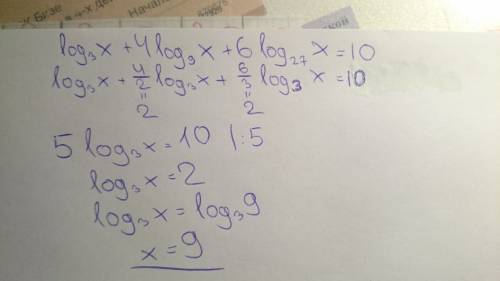 к Бгзе
Начала
log₃x + 4log₉x + 6log₂₇x = 10
log₃x + 4/2 log₃x + 6/3 log₃x = 10
= =
2 2
5 log₃x = 10 |:5
log₃x = 2
log₃x = log₃9
x = 9